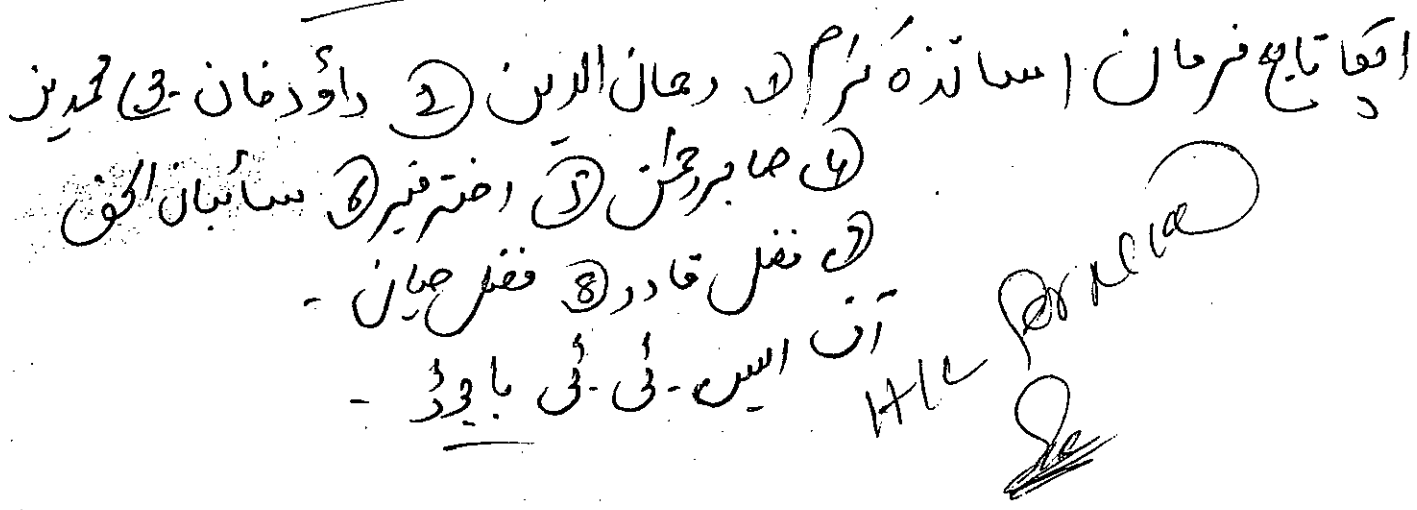 آپکا تابع فرمان اساتذہ کرام ① رحمان الدین ② داؤد خان ③ محمد دین
④ صابر رحمٰن ⑤ اختر منیر ⑥ سائبان الحق
⑦ فضل قادر ⑧ فضل حیان -
آف ایس - ٹی - ٹی باجوڑ -